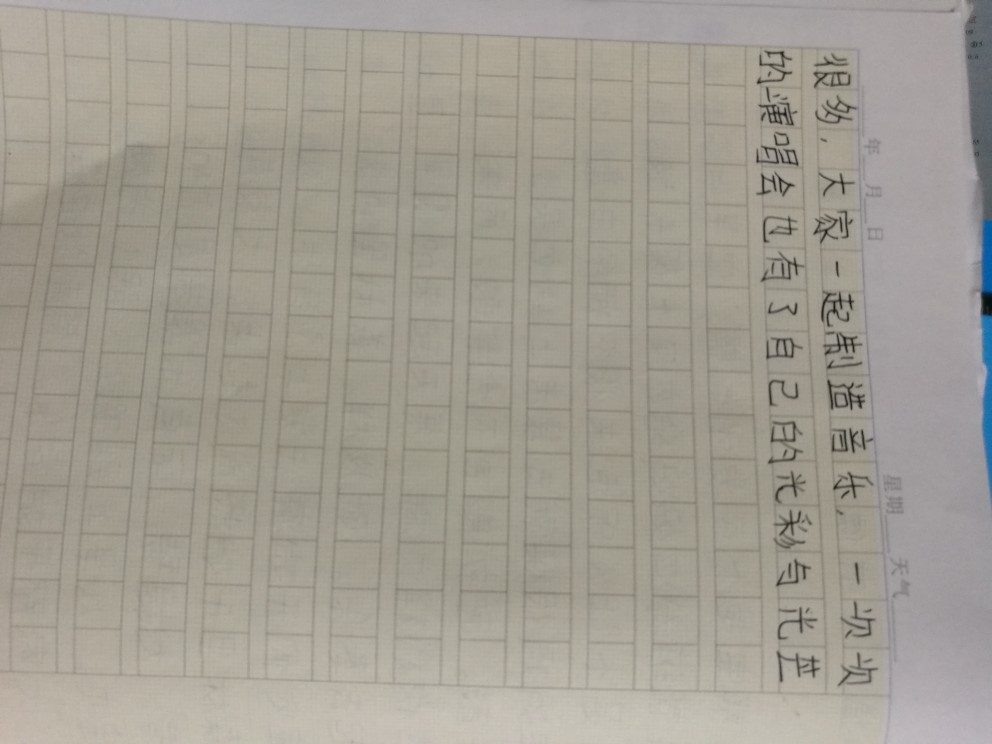 年 月 日 星期 天气
很多，大家一起制造音乐，一次次
的演唱会也有了自己的光彩与光芒